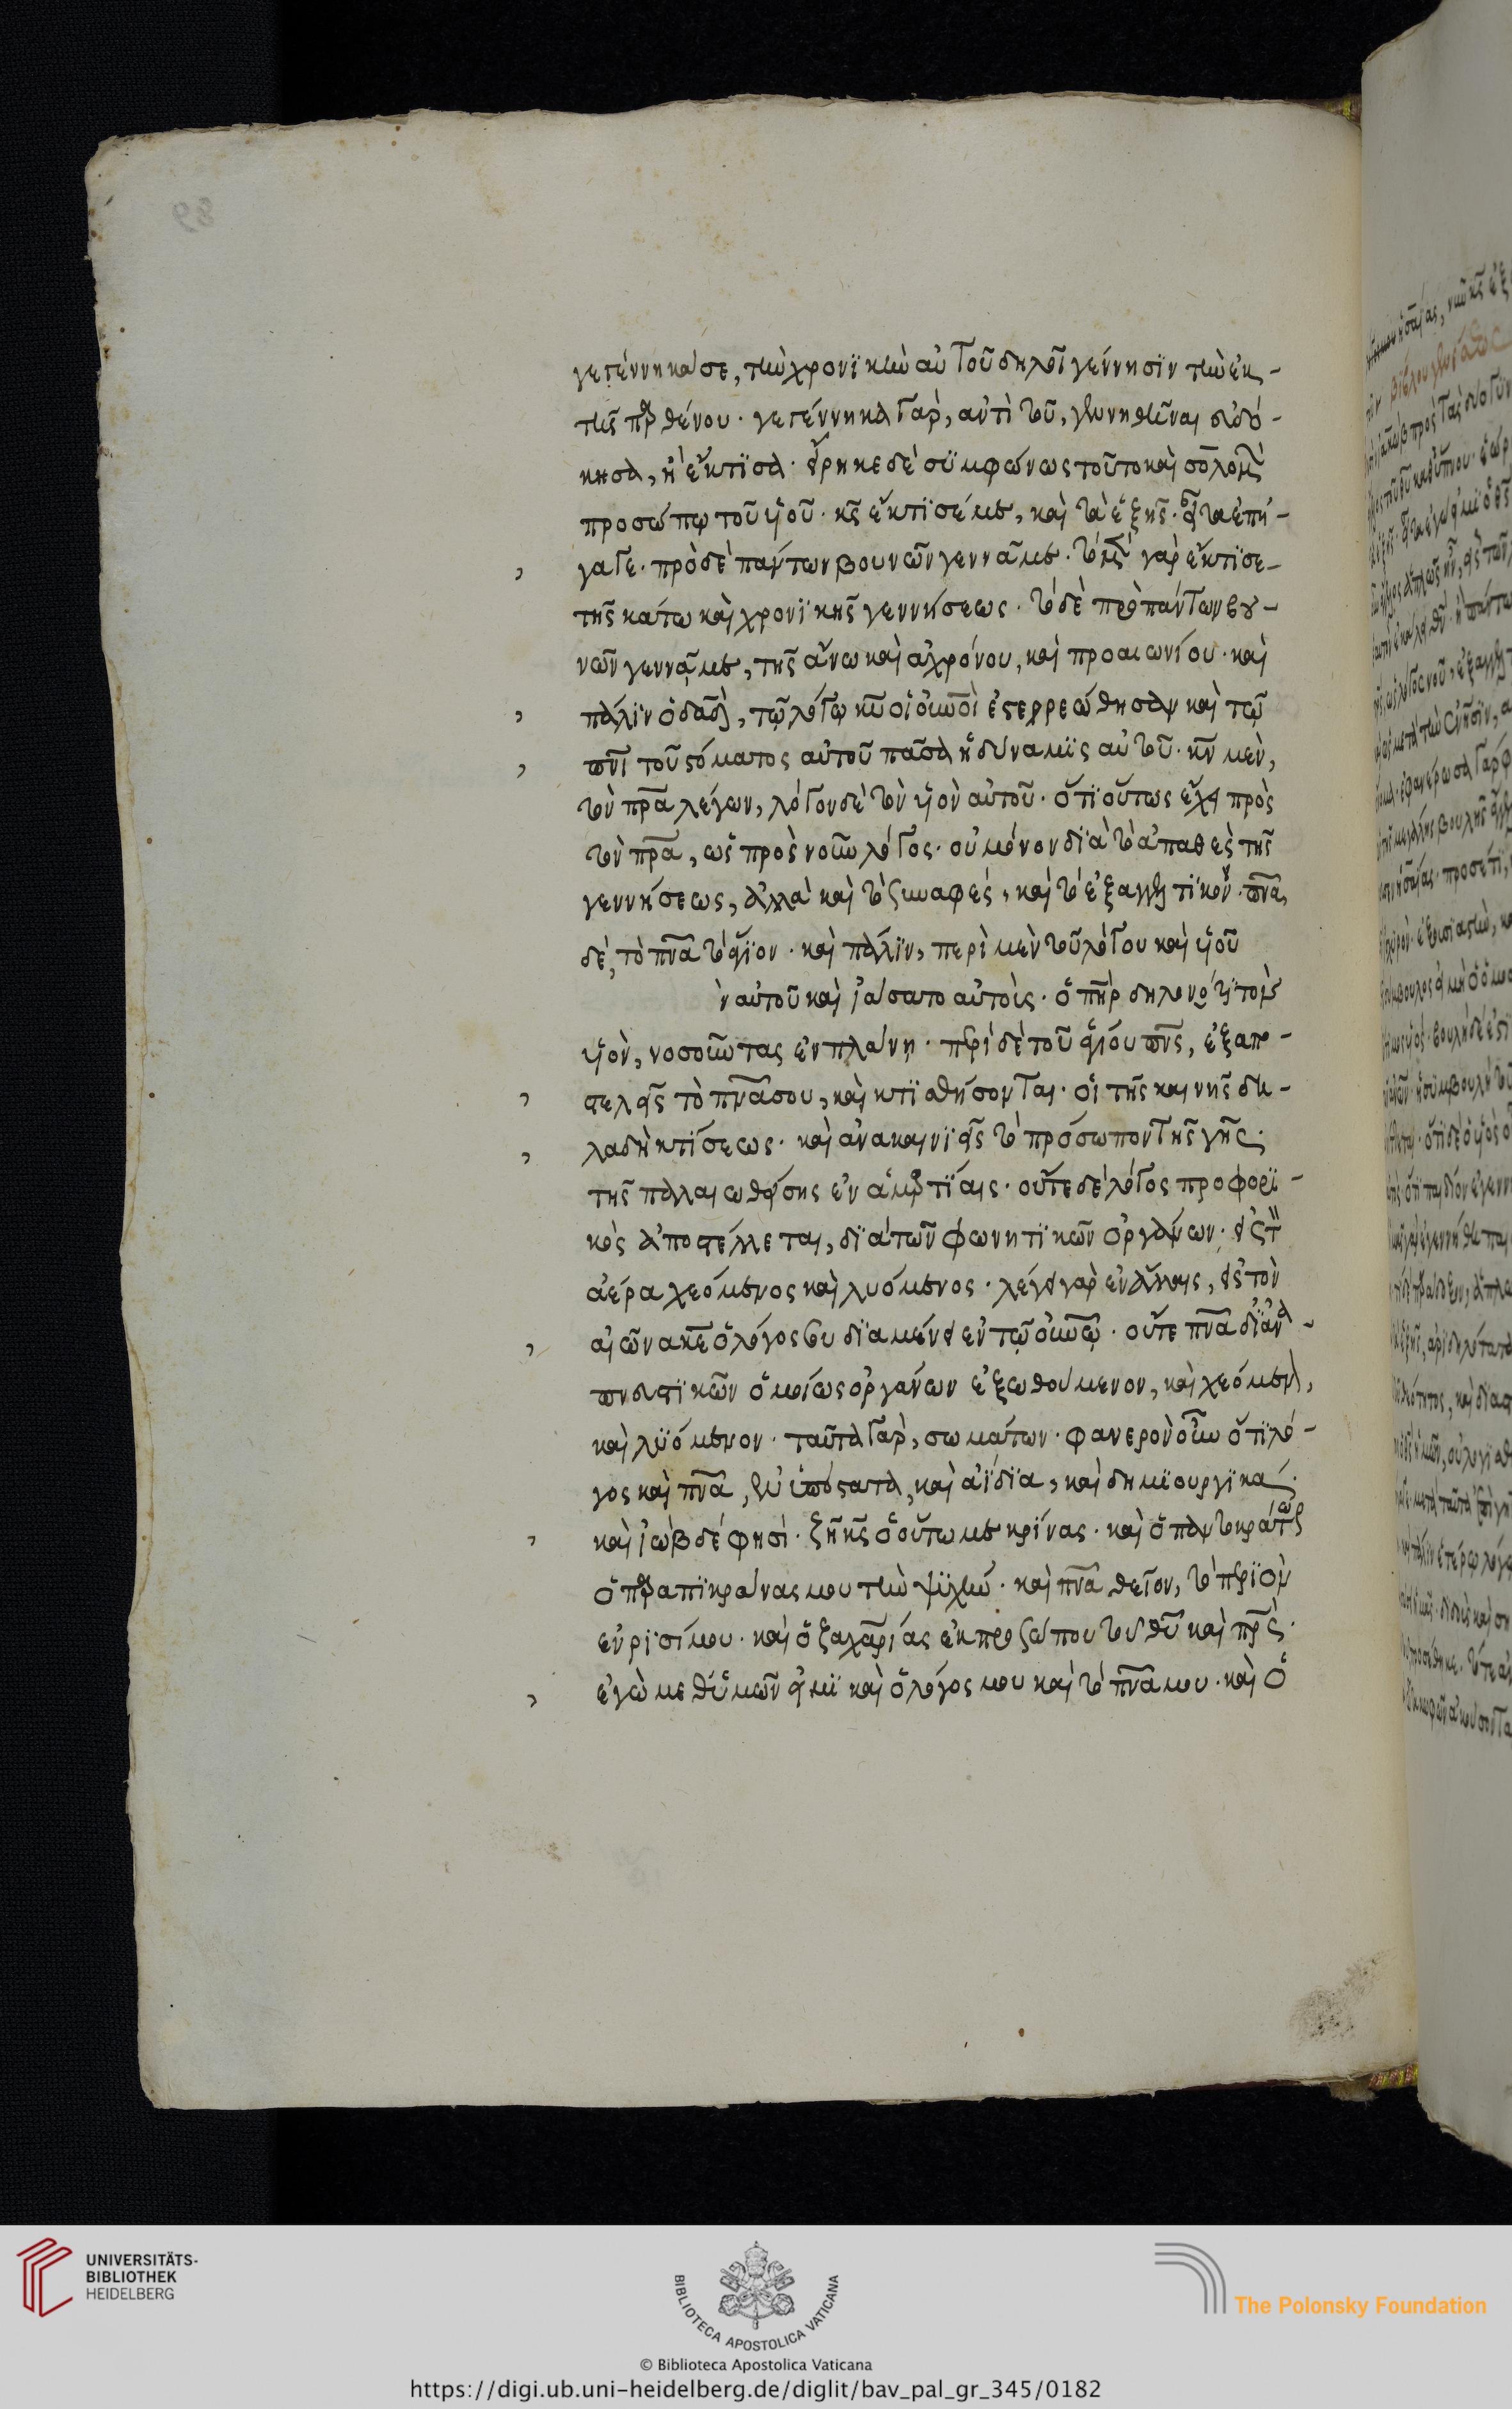 89
γεγέννηκά σε, τὴν χρονϊκὴν αὐτοῦ δηλοῖ γέννησϊν τὴν ἐκ-
τῆς πρθένου· γεγέννηκα γὰρ, ἀντὶ τοῦ, γεννηθῆναι εὐδό-
κησα, ἢ ἔκτϊσα· εἴρηκε δὲ συμφώνως τοῦτο καὶ σολομὼν
προσώπῳ τοῦ υἱοῦ· κς ἔκτϊσέ με, καὶ τὰ ἑξῆς· εἶτα ἐπή-
γαγε· πρὸ δὲ πάντων βουνῶν γεννᾶ με· τὸ μὲν γὰρ ἔκτϊσε-
τῆς κάτω καὶ χρονϊκῆς γεννήσεως· τὸ δὲ πρὸ πάντων βου-
νῶν γεννᾶ με, τῆς ἄνω καὶ ἀχρόνου, καὶ προαιωνίου· καὶ
πάλϊν ὁ δαδ, τῷ λόγῳ κυ οἱ οὐνοὶ ἐστερρεώθησαν καὶ τῷ
πνι τοῦ στόματος αὐτοῦ πᾶσα ἡ δύναμϊς αὐτοῦ· κν μὲν,
τὸν πρα λέγων, λόγον δὲ τὸν υἱὸν αὐτοῦ· ὅτϊ οὕτως ἔχει πρὸς
τὸν πρα, ὡς πρὸς νοῦν λόγος· οὐ μόνον δϊὰ τὸ ἀπαθὲς τῆς
γεννήσεως, ἀλλὰ καὶ τὸ συναφές, καὶ τὸ ἐξαγγελτϊκόν· πνα
δέ, τὸ πνα τὸ ἅγϊον· καὶ πάλϊν, περὶ μὲν τοῦ λόγου καὶ υἱοῦ
ν αὐτοῦ καὶ ἰάσατο αὐτοὺς· ὁ πηρ δηλονότϊ τὸν
υἱὸν, νοσοῦντας ἐν πλάνῃ· περὶ δὲ τοῦ ἁγίου πνς, ἐξαπο-
στελεῖς τὸ πνα σου, καὶ κτϊσθήσονται· οἱ τῆς καινῆς δη-
λαδὴ κτίσεως· καὶ ἀνακαινϊεῖς τὸ πρόσωπον τῆς γῆς·
τῆς παλαιωθείσης ἐν ἁμρτίαις· οὔτε δὲ λόγος προφορϊ-
κὸς ἀποστέλλεται, δϊὰ τῶν φωνητϊκῶν ὀργάνων· εἰς τὸν
ἀέρα χεόμενος καὶ λυόμενος· λέγει γὰρ ἐν ἄλλοις, εἰς τὸν
αἰῶνα κε ὁ λόγος σου δϊαμένει ἐν τῷ οὐνῷ· οὔτε πνα δϊὰ ἀνα-
πνευστϊκῶν ὁμοίως ὀργάνων ἐξωθούμενον, καὶ χεόμενον,
καὶ λϋόμενον· ταῦτα γὰρ, σωμάτων· φανερὸν οὖν ὅτϊ λό-
γος καὶ πνα, ἐνυπόστατα, καὶ ἀΐδϊα, καὶ δημϊουργϊκά·
καὶ ἰὼβ δέ φησί· ζῇ κς ὁ οὕτω με κρίνας· καὶ ὁ παντοκράτωρ
ὁ πρπϊκράνας μου τὴν ψϋχήν· καὶ πνα θεῖον, τὸ περϊὸν
ἐν ρϊσί μου· καὶ ὁ ζαχαρίας ἐκ προσώπου τοῦ θυ καὶ πρς·
ἐγὼ μεθ' ὑμῶν εἰμϊ καὶ ὁ λόγος μου καὶ τὸ πνα μου· καὶ ὁ
UNIVERSITÄTS-
BIBLIOTHEK
HEIDELBERG
BIBLIOTECA APOSTOLICA VATICANA
The Polonsky Foundation
© Biblioteca Apostolica Vaticana
https://digi.ub.uni-heidelberg.de/diglit/bav_pal_gr_345/0182